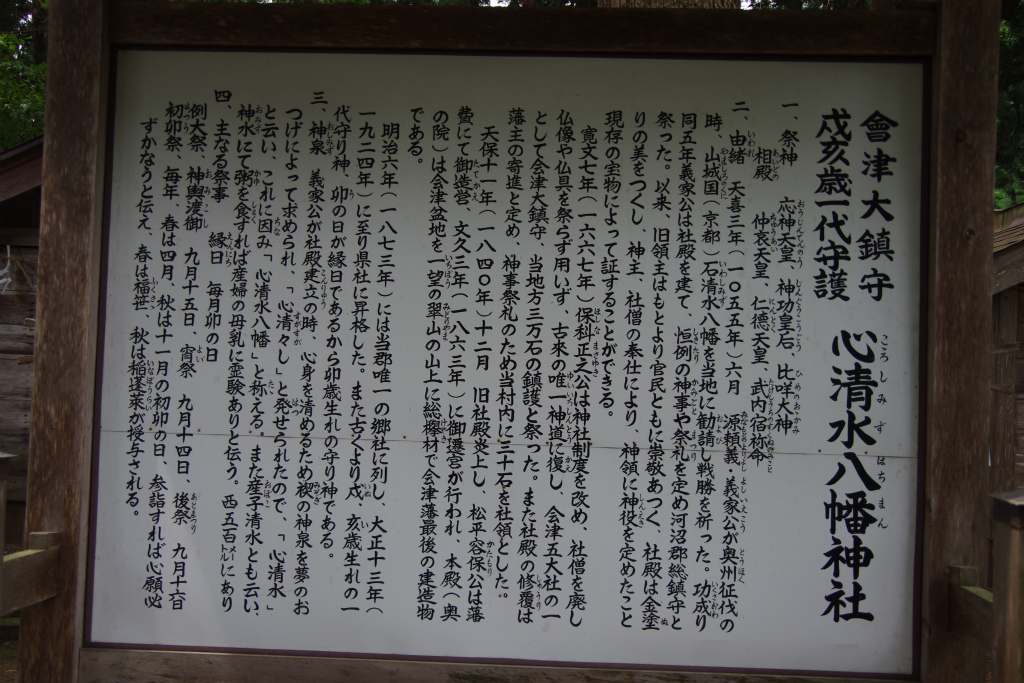 會津大鎮守
戌亥歳一代守護
心清水八幡神社
一、祭神 応神天皇、神功皇后、比咩大神
相殿 仲哀天皇、仁徳天皇、武内宿祢命
二、由緒 天喜三年（一〇五五年）六月 源頼義・義家公が奥州征伐の
時、山城国（京都）石清水八幡を当地に勧請し戦勝を祈った。功成り
同五年義家公は社殿を建て、恒例の神事や祭礼を定め河沼郡総鎮守と
祭った。以来、旧領主はもとより官民ともに崇敬あつく、社殿は金塗
りの美をつくし、神主、社僧の奉仕により、神領に神役を定めたこと
現存の宝物によって証することができる。
寛文七年（一六六七年）保科正之公は神社制度を改め、社僧を廃し
仏像や仏具を祭らず用いず、古来の唯一神道に復し、会津五大社の一
として会津大鎮守、当地方三万石の鎮護と祭った。また社殿の修覆は
藩主の寄進と定め 神事祭礼のため当村内に三十石を社領とした。
天保十一年（一八四〇年）十二月 旧社殿炎上し、松平容保公は藩
費にて御造営、文久三年（一八六三年）に御遷宮が行われ、本殿（奥
の院）は会津盆地を一望の翠山の山上に総欅材で会津藩最後の建造物
である。
明治六年（一八七三年）には当郡唯一の郷社に列し、大正十三年（
一九二四年）に至り県社に昇格した。また古くより戌、亥歳生れの一
代守り神、卯の日が縁日であるから卯歳生れの守り神である。
三、神泉 義家公が社殿建立の時、心身を清めるため禊の神泉を夢のお
つげによって求められ、「心清々し」と発せられたので、「心清水」
と云い、これに因み「心清水八幡」と称える。また産子清水とも云い、
神水にて粥を食ずれば産婦の母乳に霊験ありと伝う。西五百メートルにあり
四、主なる祭事 縁日 毎月卯の日
例大祭、神輿渡御 九月十五日 宵祭 九月十四日、後祭 九月十六日
初卯祭、毎年、春は四月、秋は十一月の初卯の日、参詣すれば心願必
ずかなうと伝え、春は福笹、秋は稲蓬莱が授与される。